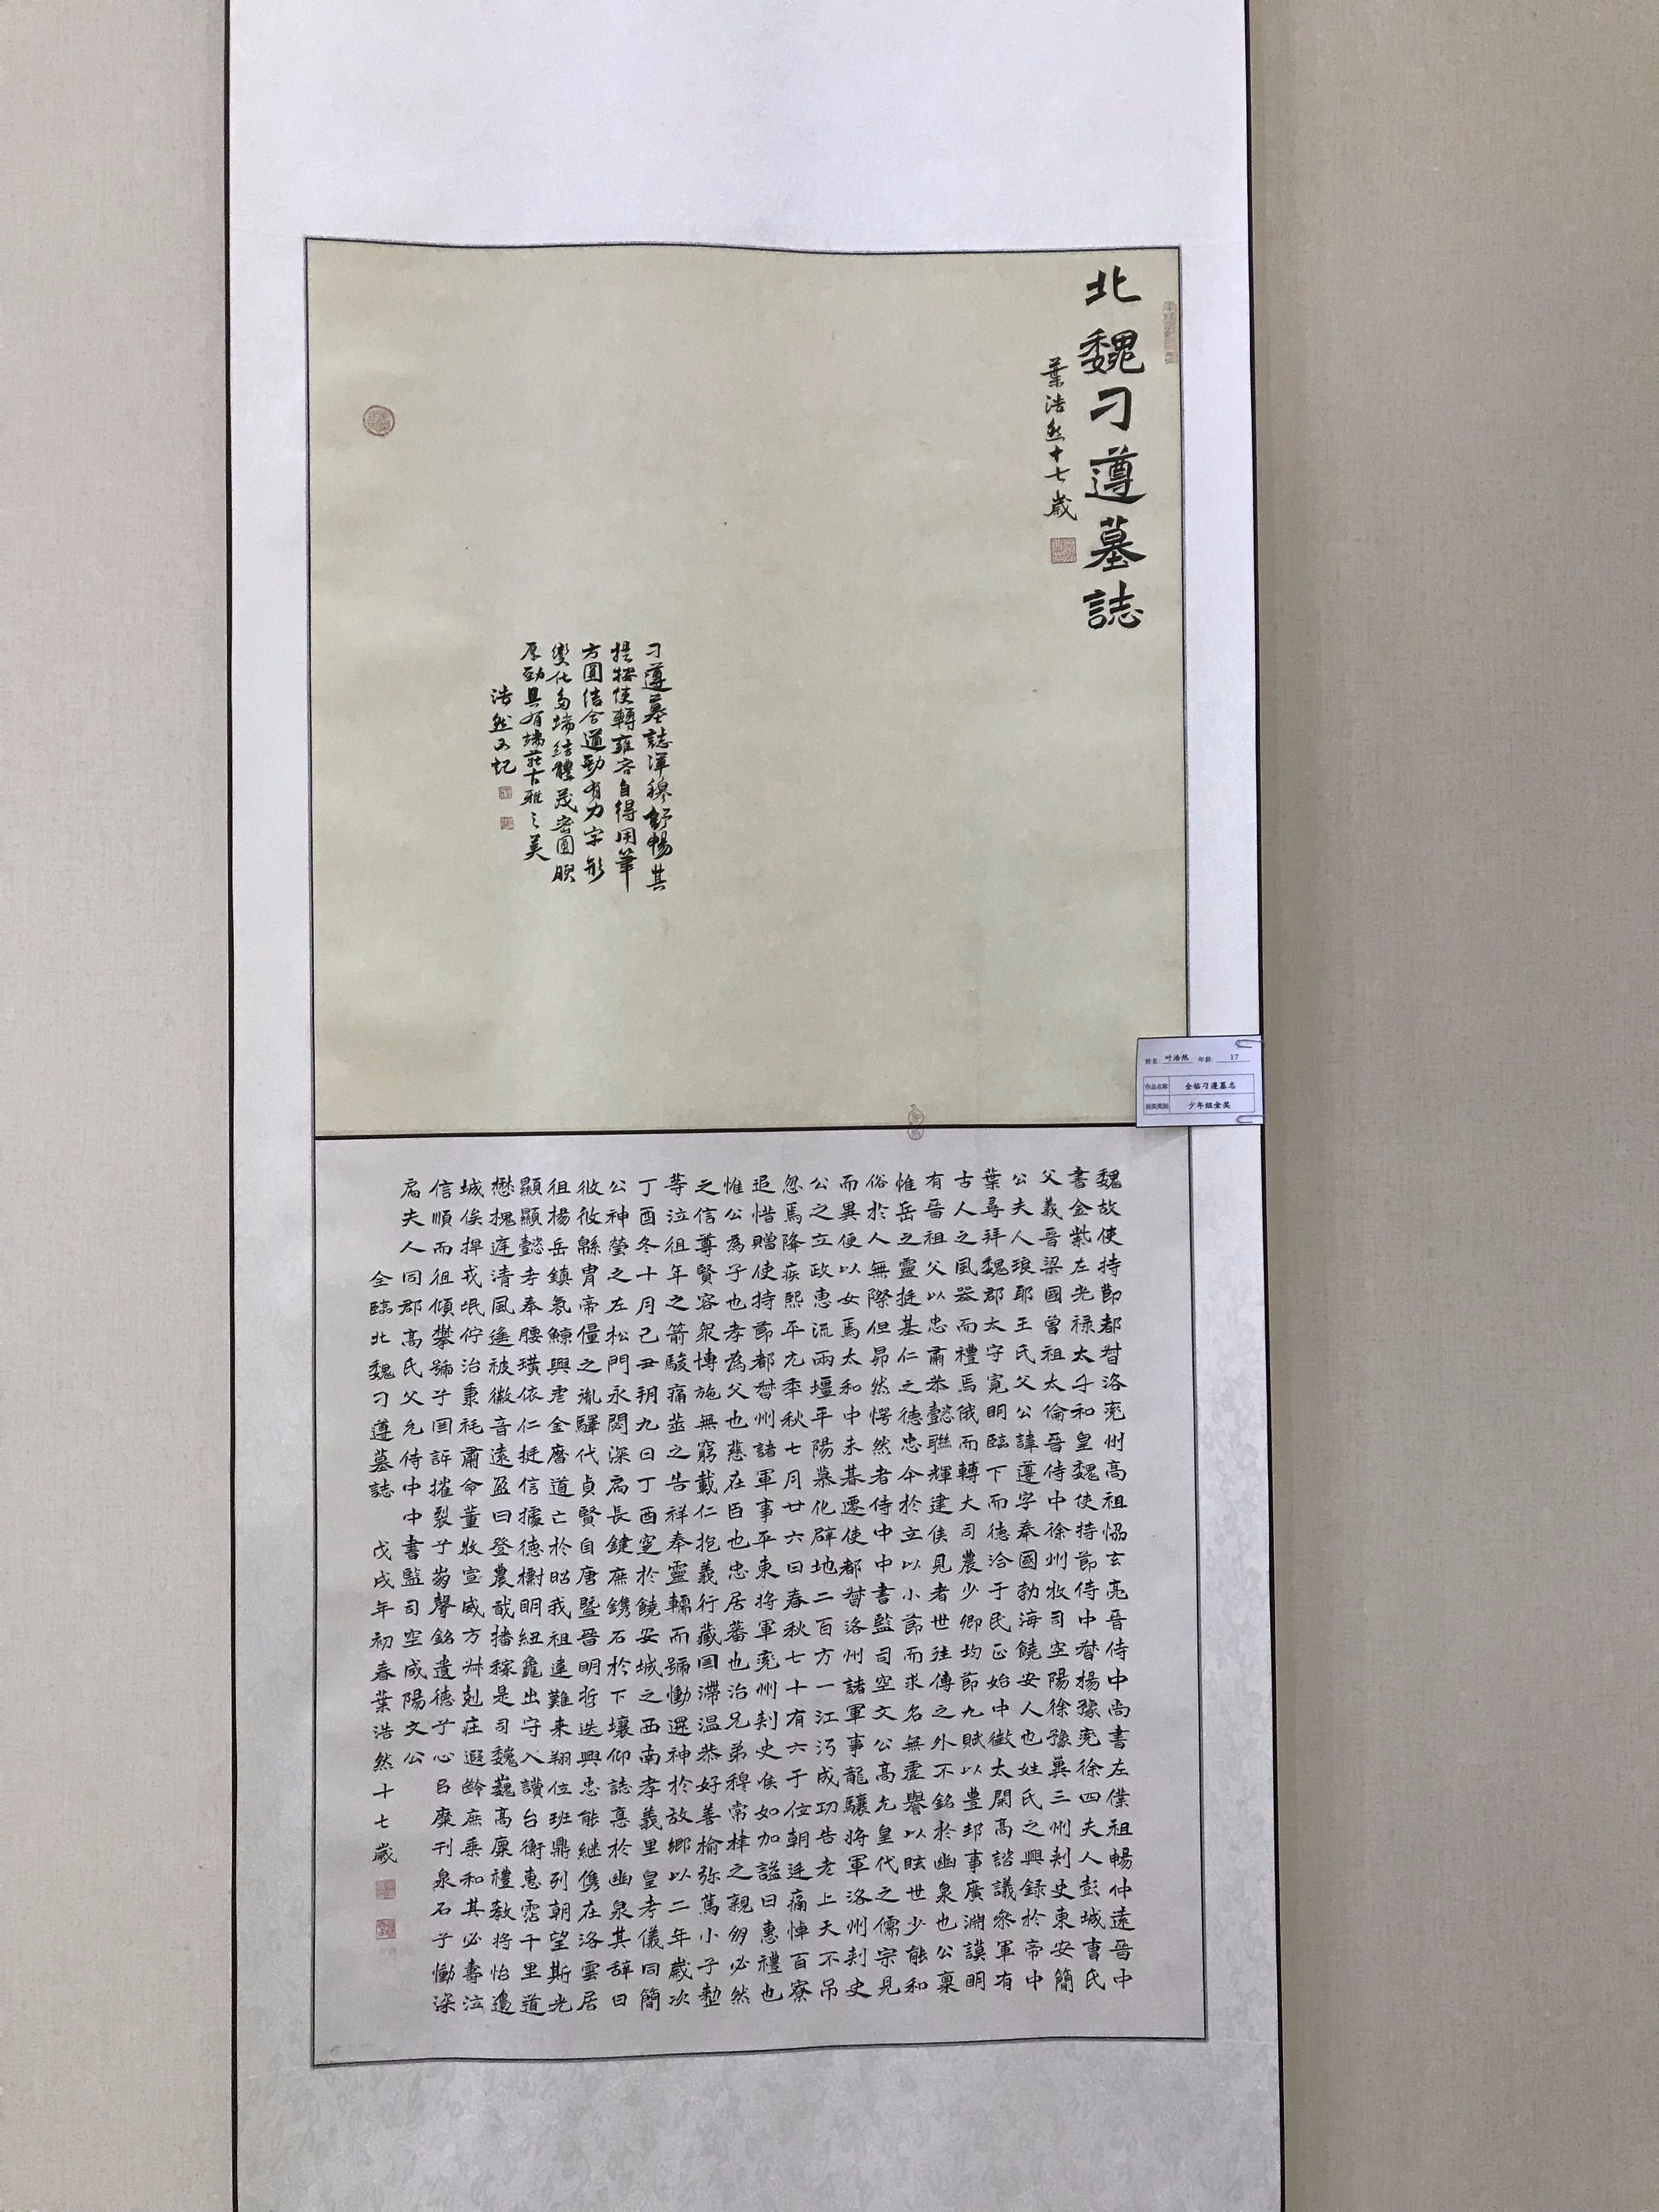 北魏刁遵墓誌
葉浩然十七歲
刁遵墓誌渾穆舒暢其
提按使轉雍容自得用筆
方圓結合遒勁有力字形
變化多端結體茂密圓腴
厚勁具有端莊古雅之美
浩然又記
姓名 叶浩然 年龄 17
作品名称 全临刁遵墓志
获奖类别 少年组金奖
魏故使持節都督洛兗州高祖協玄亮晉侍中尚書左僕祖暢仲遠晉中
書金紫左光祿太和皇魏使持節侍中督楊豫兗徐四夫人彭城曹氏
父義晉梁國曾祖太倫晉侍中徐州牧司空陽徐豫冀三州刾史東安簡
公夫人琅耶王氏父公諱遵字奉國勃海饒安人也姓氏之興録於帝中
葉尋拜魏郡太守寬明臨下而德洽于民正始中徵太開高諮議參軍有
古人之風器而禮焉俄而轉大司農少卿均節九賦以豊邦事廣淵謨明
有晉祖父以忠肅恭懿聯輝建侯見者世往傳之外不銘於幽泉也公稟
惟岳之靈挺基仁之德忠今於立以小節而求名無虛譽以眩世少能和
俗於人無際但昴然愕然者侍中中書監司空文公高允皇代之儒宗見
而異便以女焉太和中未朞遷使都督洛州諸軍事龍驤將軍洛州刾史
公之立政惠流兩壃平陽慕化辟地二百方一江沔成功告老上天不弔
忽焉降疾熙平九年秋七月廿六日春秋七十有六于位朝廷痛悼百寮
追惜贈使持節都督州諸軍事平東將軍兗州刾史侯如加謚曰惠禮也
惟公為子也孝為父也慈在臣也忠居蕃也治兄弟穆常棣之親朋必然
之信尊賢容衆博施無窮載仁抱義行藏囯滯温恭好善榆弥篤小子懃
等泣徂年之箭駿痛之告祥奉靈轜而號慟遷神於故鄉以二年歲次
丁酉冬十月己丑朔九日丁酉窆於饒安城之西南孝義里皇考儀同簡
公神瑩之左松門永閟深扃長鍵庶鐫石於下壤仰誌惪於幽泉其辭曰
攸攸緜胄帝僮之胤驛代貞賢自唐暨晉明哲迭興忠能継儁在洛雲居
徂楊岳鎮氛鯨興虐金曆道亡於昭我祖違難来翔位班鼎列朝望斯光
顯顯懿考奉腰璜依仁挺信據德樹明紐龜出守入讚台衡惠霑千里道
懋槐庭清風遙被徽音遠盈曰登農哉播稼是司魏巍高廩禮教將怡邉
城俟捍戎氓佇治秉耗肅命董牧宣威方牀剋莊遐齡庶乗和其必壽泣
信順而徂傾攀號子囯訴摧裂子崩聲銘遺德子心㠯糜刊泉石子慟深
扃夫人同郡高氏父允侍中中書監司空咸陽文公
全臨北魏刁遵墓誌 戊戌年初春葉浩然十七歲